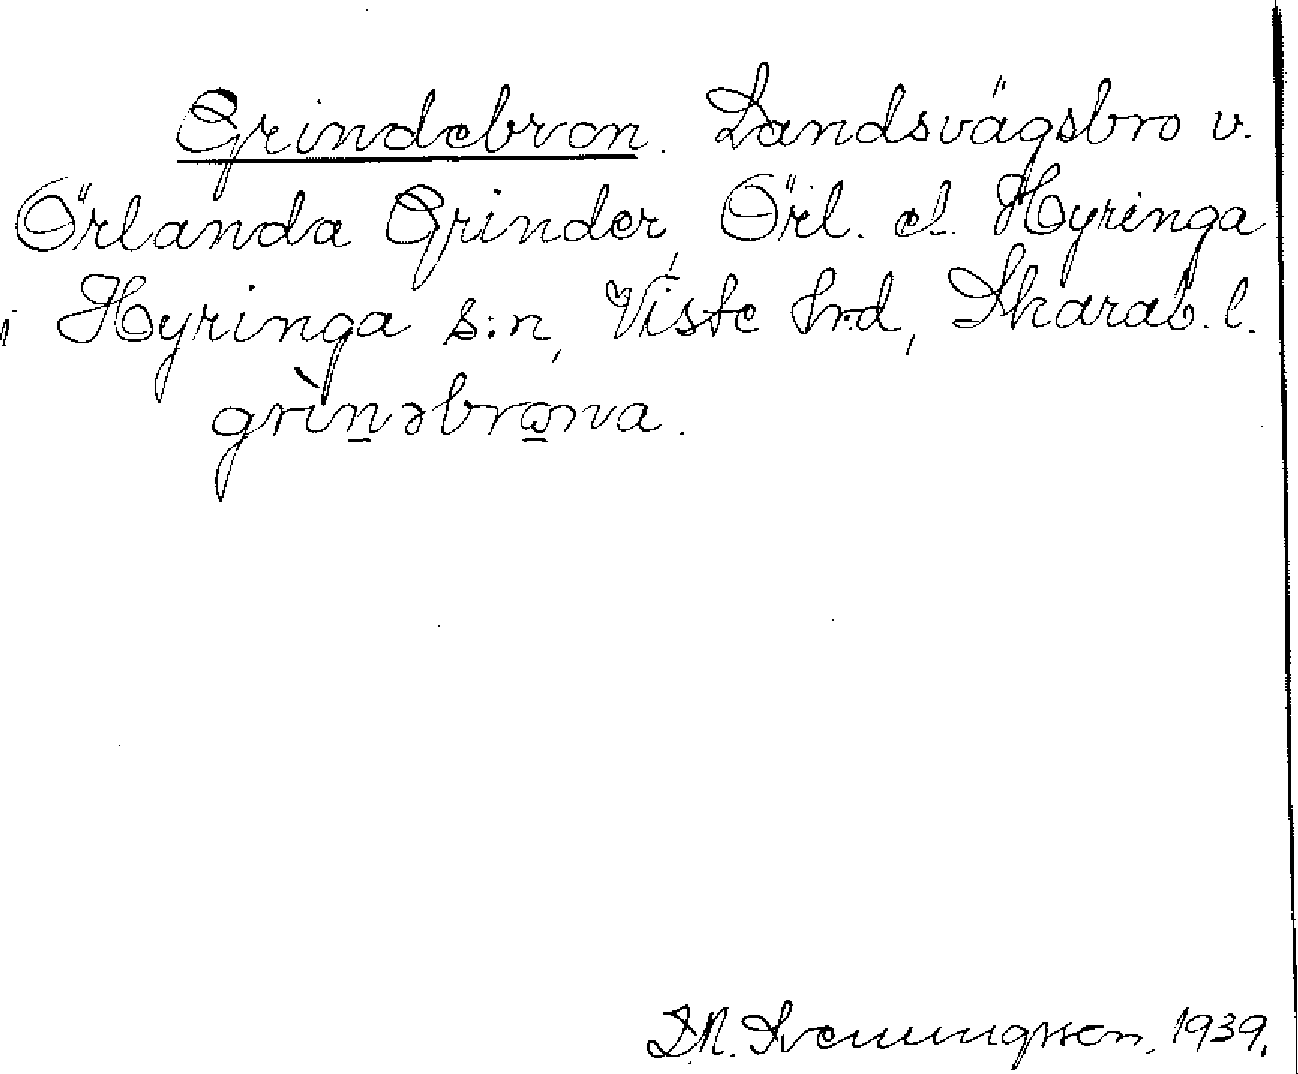 Grindebron. Landsvägsbro v.
Örlanda Grinder, Örl. el. Hyringa
i Hyringa s:n, Viste hrd, Skarab. l.
grìn̲əbro̲na.
Svenungsson, 1939.